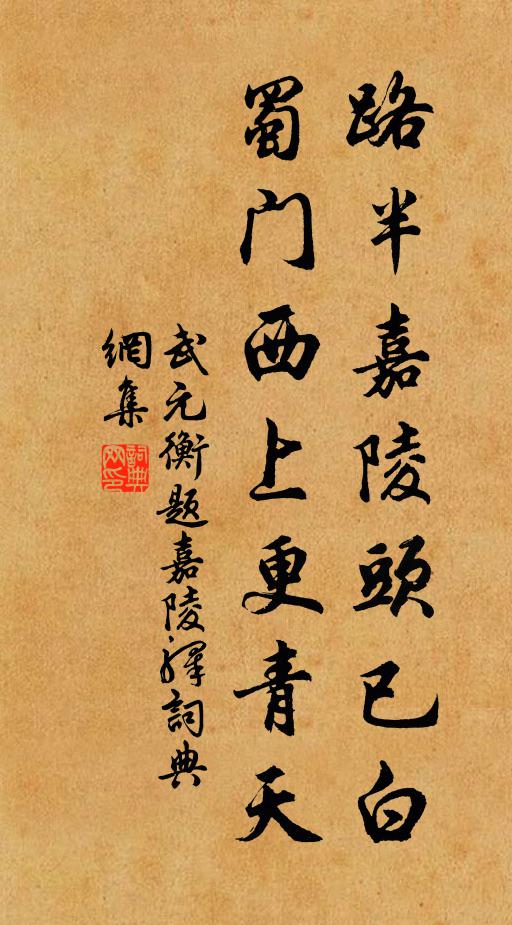 路半嘉陵頭已白
蜀门西上更青天
武元衡题嘉陵驛詞典
網集
詞典
网印